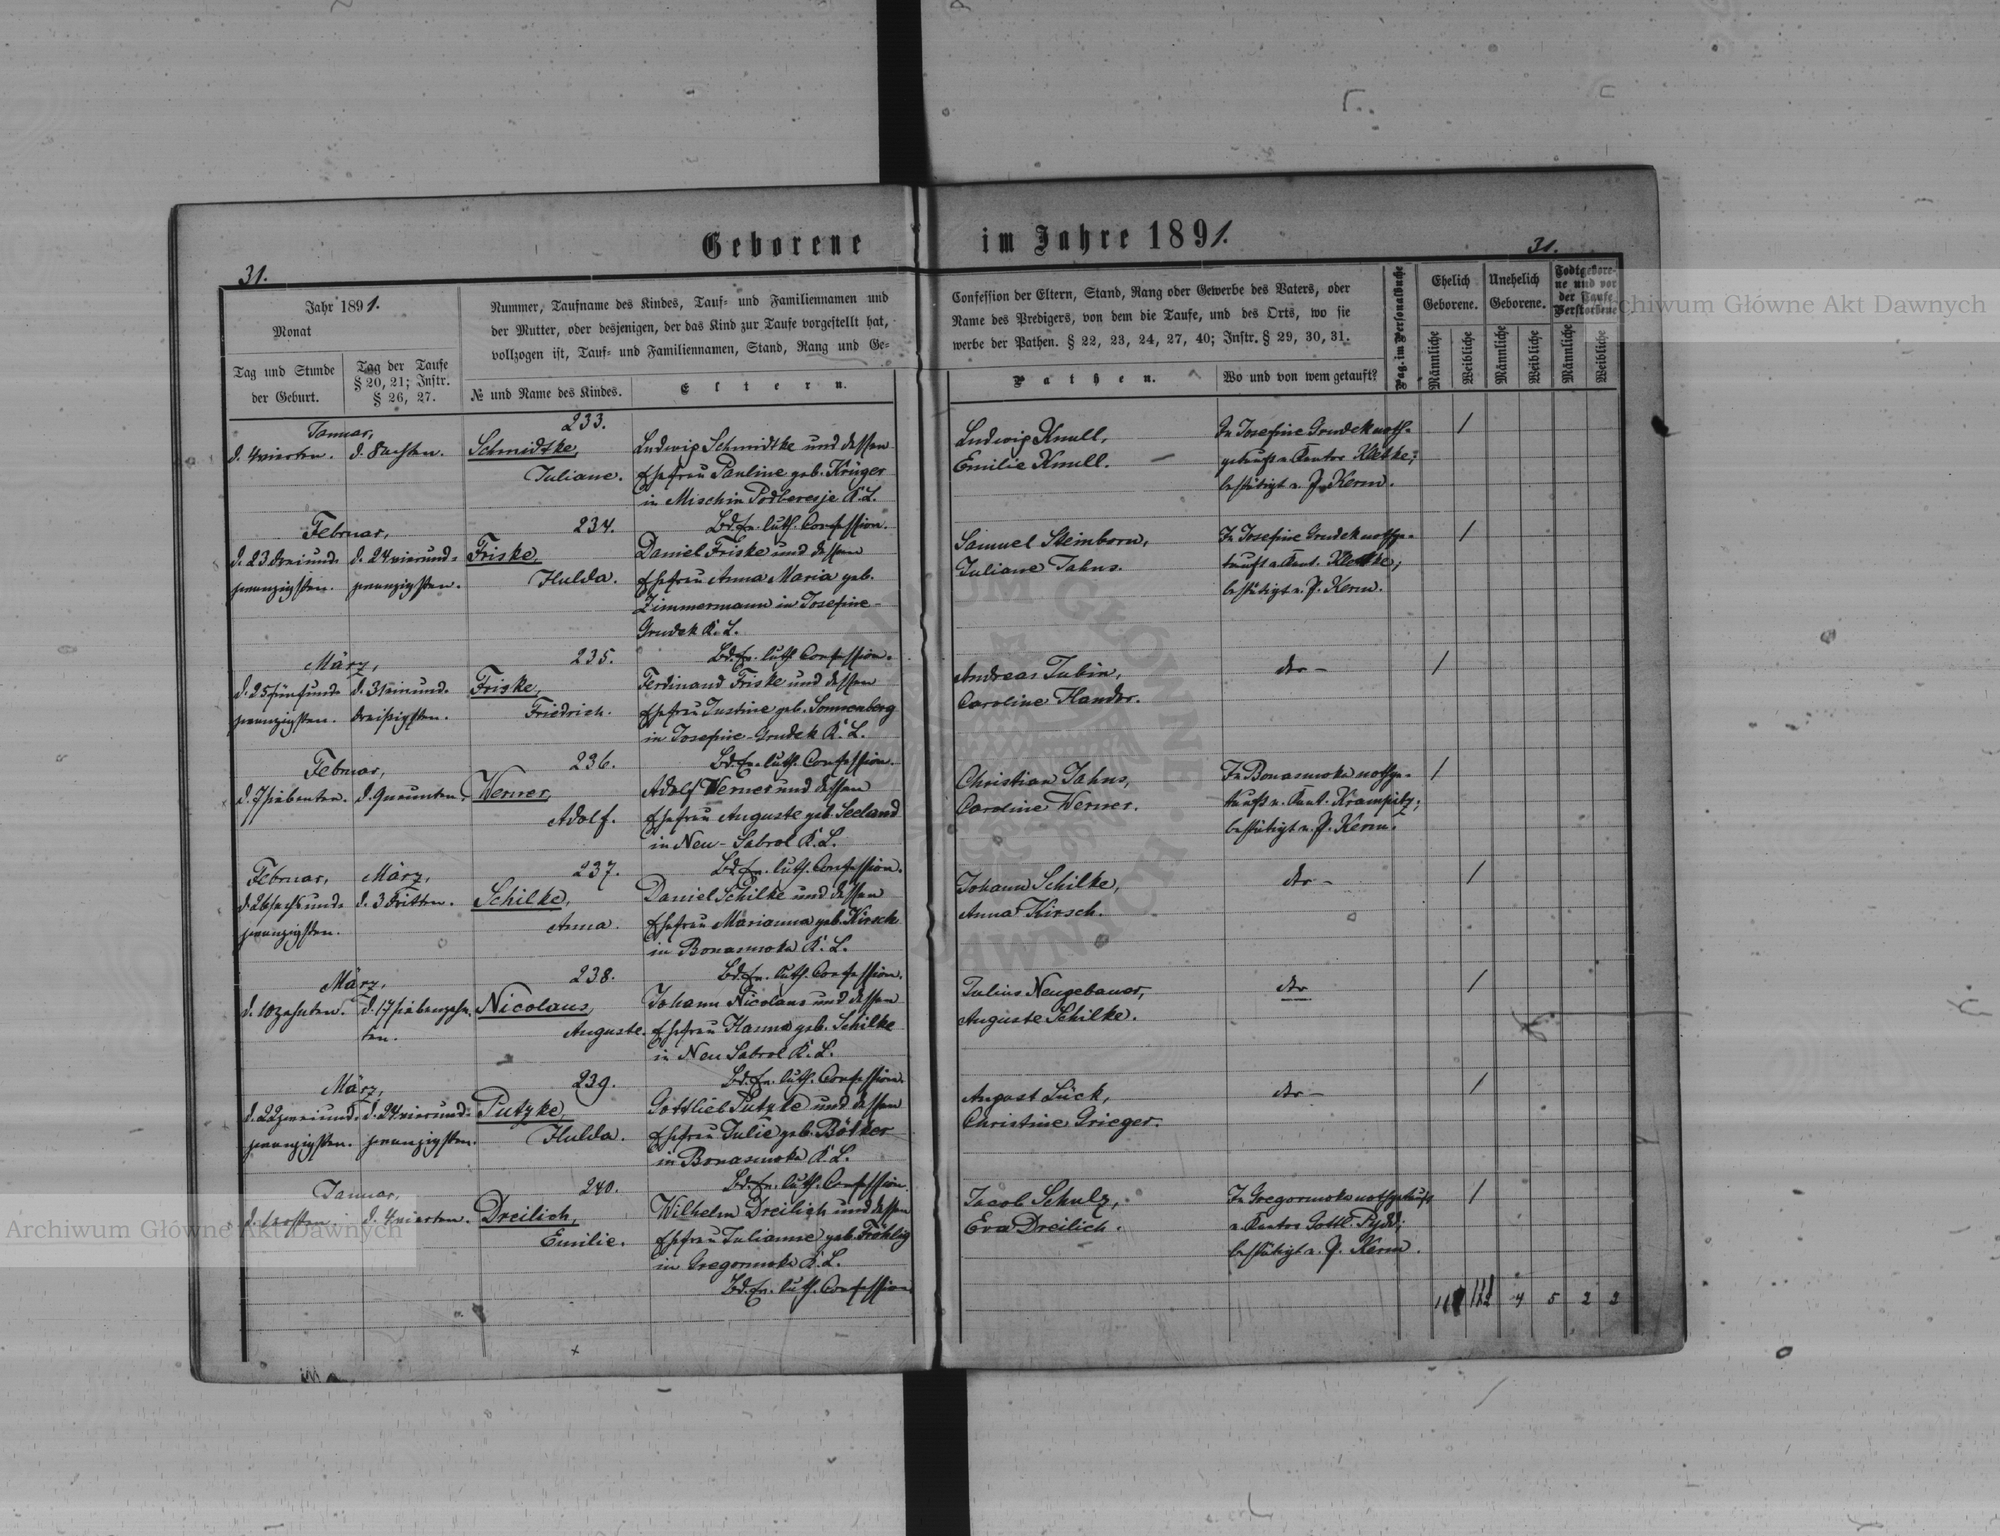 Geborene im Jahre 1891.
31.
31.
Jahr 1891.
Monat
Tag und Stunde
der Geburt.
Tag der Taufe
§ 20, 21; Instr.
§ 26, 27.
Nummer, Taufname des Kindes, Tauf- und Familiennamen und
der Mutter, oder desjenigen, der das Kind zur Taufe vorgestellt hat,
vollzogen ist, Tauf- und Familiennamen, Stand, Rang und Ge-
№ und Name des Kindes.
Eltern.
Confession der Eltern, Stand, Rang oder Gewerbe des Vaters, oder
Name des Predigers, von dem die Taufe, und des Orts, wo sie
werbe der Pathen. § 22, 23, 24, 27, 40; Instr. § 29, 30, 31.
Pathen.
Wo und von wem getauft?
Pag. im Personalbuche
Ehelich
Geborene.
Unehelich
Geborene.
Todtgebore-
ne und vor
der Taufe
Verstorbene
Männliche
Weibliche
Männliche
Weibliche
Männliche
Weibliche
Januar,
d. 4 vierten. d. 8 achten.
233.
Schmidtke,
Juliane.
Ludwig Schmidtke und dessen
Ehefrau Pauline geb. Krüger
in Mischin Podberesje K. L.
Bd. Ev. luth. Confession.
Ludwig Knull,
Emilie Knull.
In Josefine Grudek noth-
getauft v. Kantor Klatke;
bestätigt v. P. Kerm.
Februar,
d. 23 dreiund-
zwanzigsten.
d. 24 vierund-
zwanzigsten.
234.
Friske,
Hulda.
Daniel Friske und dessen
Ehefrau Anna Maria geb.
Zimmermann in Josefine-
Grudek K. L.
Bd. Ev. luth. Confession.
Samuel Steinborn,
Juliane Jahns.
In Josefine Grudek nothge-
tauft v. Kant. Klatke;
bestätigt v. P. Kerm.
März,
d. 25 fünfund-
zwanzigsten.
d. 31 einund-
dreißigsten.
235.
Friske,
Friedrich.
Ferdinand Friske und dessen
Ehefrau Justine geb. Sonnenberg
in Josefine-Grudek K. L.
Bd. Ev. luth. Confession.
Andreas Tubin,
Caroline Handor.
dto –
Februar,
d. 7 siebenten. d. 9 neunten.
236.
Werner,
Adolf.
Adolf Werner und dessen
Ehefrau Auguste geb. Seeland
in Neu-Sabrol K. L.
Bd. Ev. luth. Confession.
Christian Jahns,
Caroline Werner.
In Bonasuwka nothge-
tauft v. Kant. Krampitz;
bestätigt v. P. Kerm.
Februar,
März,
d. 26 sechsund-
zwanzigsten.
d. 3 dritten.
237.
Schilke,
Anna.
Daniel Schilke und dessen
Ehefrau Marianna geb. Kirsch
in Bonasuwka K. L.
Bd. Ev. luth. Confession.
Johann Schilke,
Anna Kirsch.
dto –
März,
d. 10 zehnten. d. 17 siebenzehn-
ten.
238.
Nicolaus,
Auguste.
Johann Nicolaus und dessen
Ehefrau Hanna geb. Schilke
in Neu Sabrol K. L.
Bd. Ev. luth. Confession.
Julius Neugebauer,
Auguste Schilke.
dto
März,
d. 22 zweiund-
zwanzigsten.
d. 24 vierund-
zwanzigsten.
239.
Putzke,
Hulda.
Gottlieb Putzke und dessen
Ehefrau Julie geb. Bötker
in Bonasuwka K. L.
Bd. Ev. luth. Confession.
August Lück,
Christine Grieger.
dto –
Januar,
d. 1 ersten. d. 4 vierten.
240.
Dreilich,
Emilie.
Wilhelm Dreilich und dessen
Ehefrau Julianne geb. Fröhlig
in Gregoruwka K. L.
Bd. Ev. luth. Confession
Jacob Schulz,
Eva Dreilich.
In Gregoruwka nothgetauft
v. Kantor Gottl. Pydd;
bestätigt v. P. Kerm.
122 4 5 2 2
Archiwum Główne Akt Dawnych
Archiwum Główne Akt Dawnych